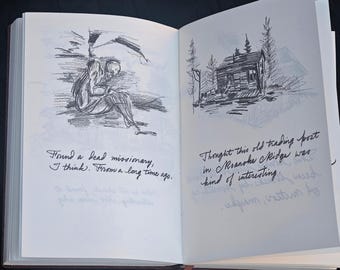 Found a dead missionary,
I think. From a long time ago.
Thought this old trading post
in Roanoke Ridge was
kind of interesting.